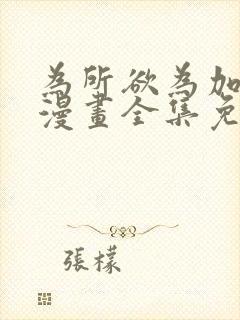 為所欲為加
漫畫全集免
張檬